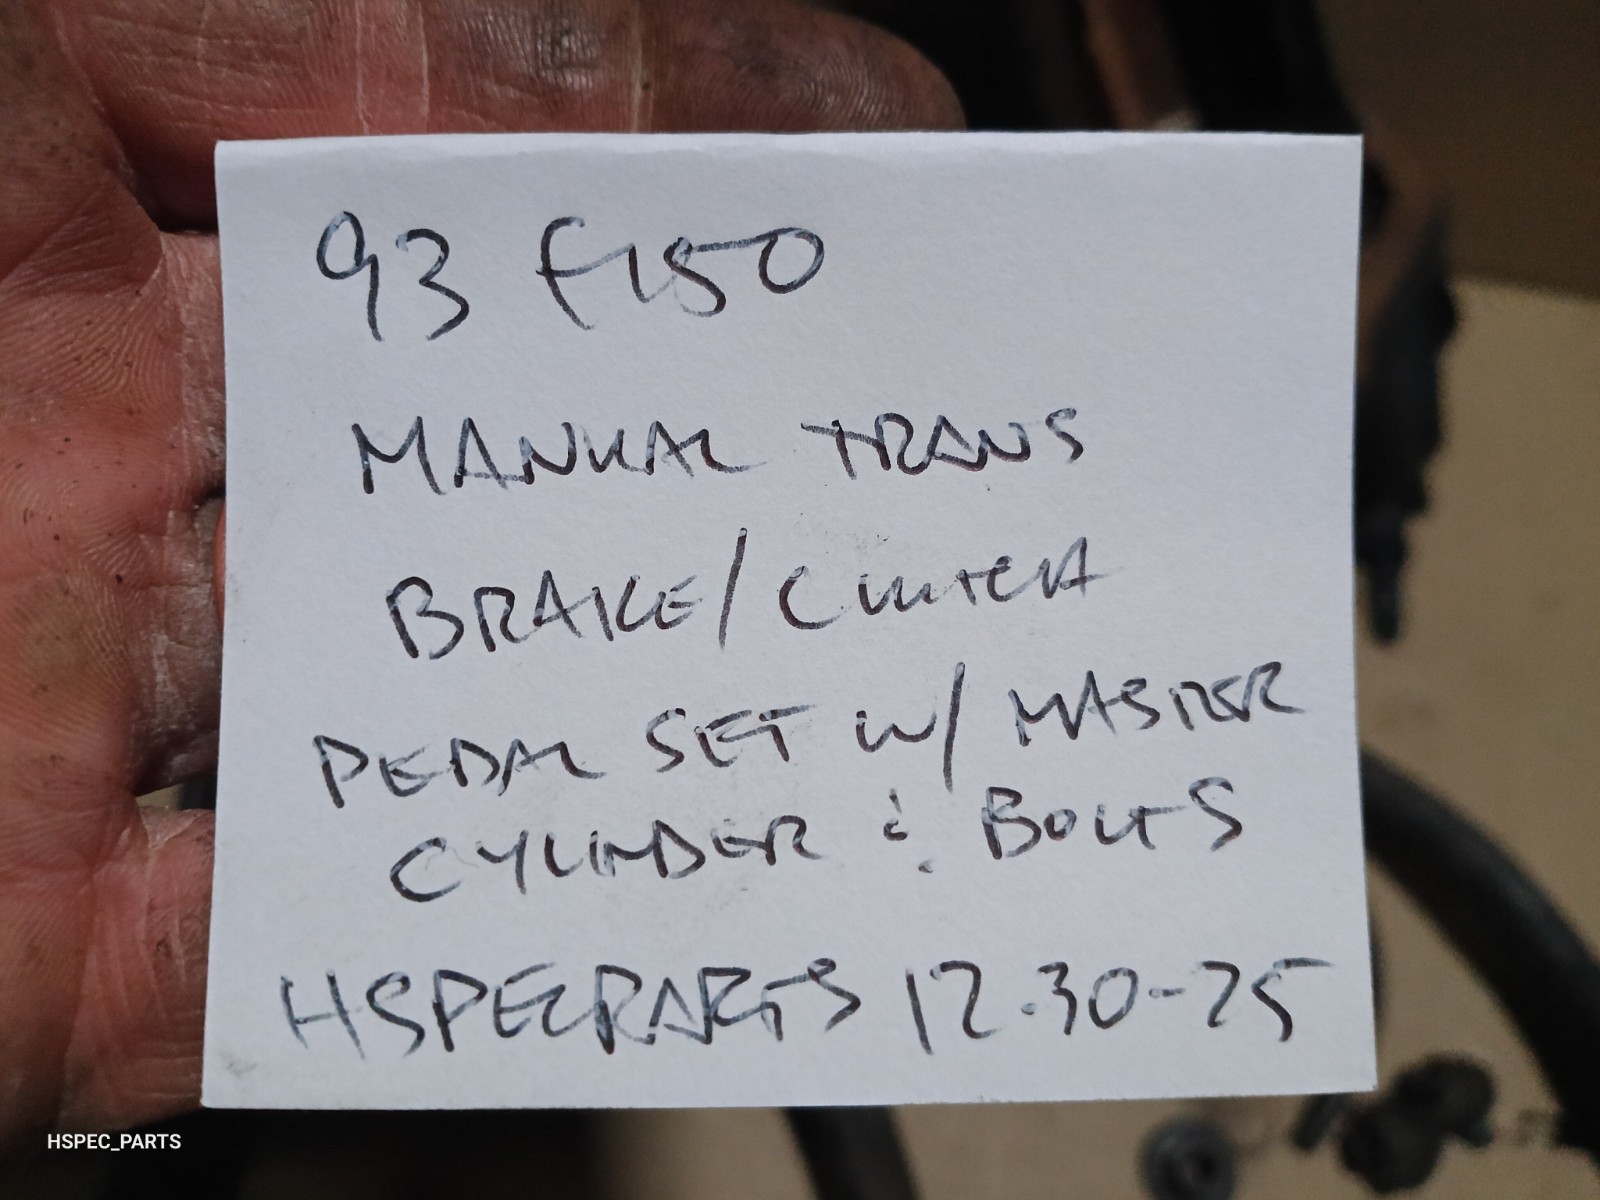 93 F150
MANUAL TRANS
BRAKE/CLUTCH
PEDAL SET W/ MASTER
CYLINDER & BOLTS
HSPECPARTS 12-30-25
HSPEC_PARTS